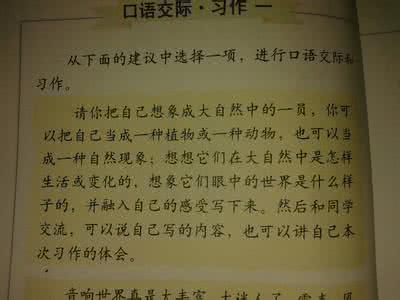 口语交际·习作一
从下面的建议中选择一项，进行口语交际和
习作。
请你把自己想象成大自然中的一员，你可
以把自己当成一种植物或一种动物，也可以当
成一种自然现象；想想它们在大自然中是怎样
生活或变化的，想象它们眼中的世界是什么样
子的，并融入自己的感受写下来。然后和同学
交流，可以说自己写的内容，也可以讲自己本
次习作的体会。
音响世界真是太丰富